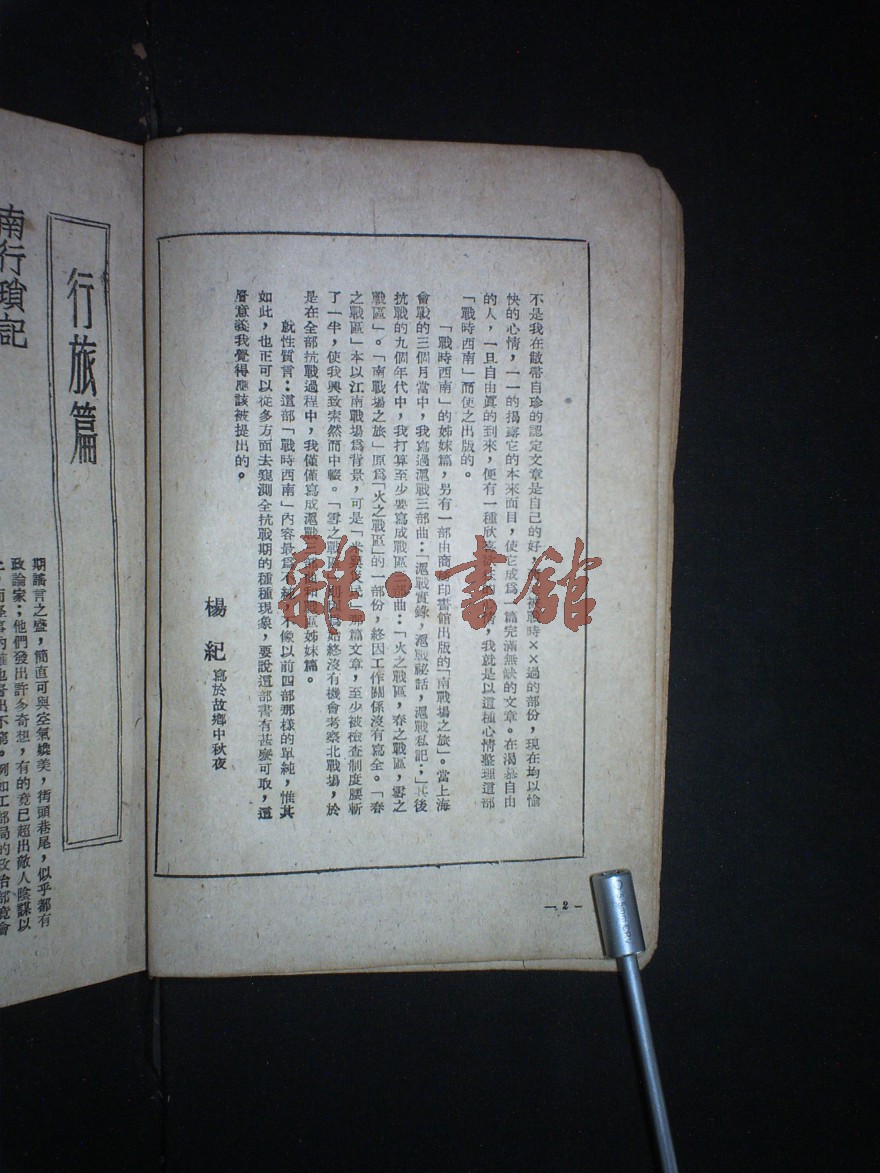 不是我在敝帶自珍的認定文章是自己的好，被戰時××過的部份，現在均以愉
快的心情，一一的揭露它的本來面目，使它成爲一篇完滿無缺的文章。在渴慕自由
的人，一旦自由眞的到來，便有一種欣喜，我就是以這種心情整理這部
「戰時西南」而使之出版的。
「戰時西南」的姊妹篇，另有一部由商務印書館出版的「南戰場之旅」。當上海
會戰的三個月當中，我寫過滬戰三部曲：「滬戰實錄，滬戰祕話，滬戰私記；」其後
抗戰的九個年代中，我打算至少要寫成戰區三部曲：「火之戰區，春之戰區，雪之
戰區」。「南戰場之旅」原爲「火之戰區」的一部份，終因工作關係沒有寫全。「春
之戰區」本以江南戰場爲背景，可是「米與後民」那篇文章，至少被檢查制度腰斬
了一半，使我興致索然而中輟。「雪之戰區」則因爲始終沒有機會考察北戰場，於
是在全部抗戰過程中，我僅僅寫成滬戰三部曲和戰區姊妹篇。
就性質言：這部「戰時西南」內容最爲不純，不像以前四部那樣的單純，惟其
如此，也正可以從多方面去窺測全抗戰期的種種現象，要說這部書有甚麽可取，這
層意義我覺得應該被提出的。
楊 紀 寫於故鄉中秋夜
— 2 —
行旅篇
南行瑣記
期謠言之盛，簡直可與空氣媲美，街頭巷尾，似乎都有
政論家；他們發出許多奇想，有的竟已超出敵人陰謀以
例如工部局的政治部竟會
雜·書館